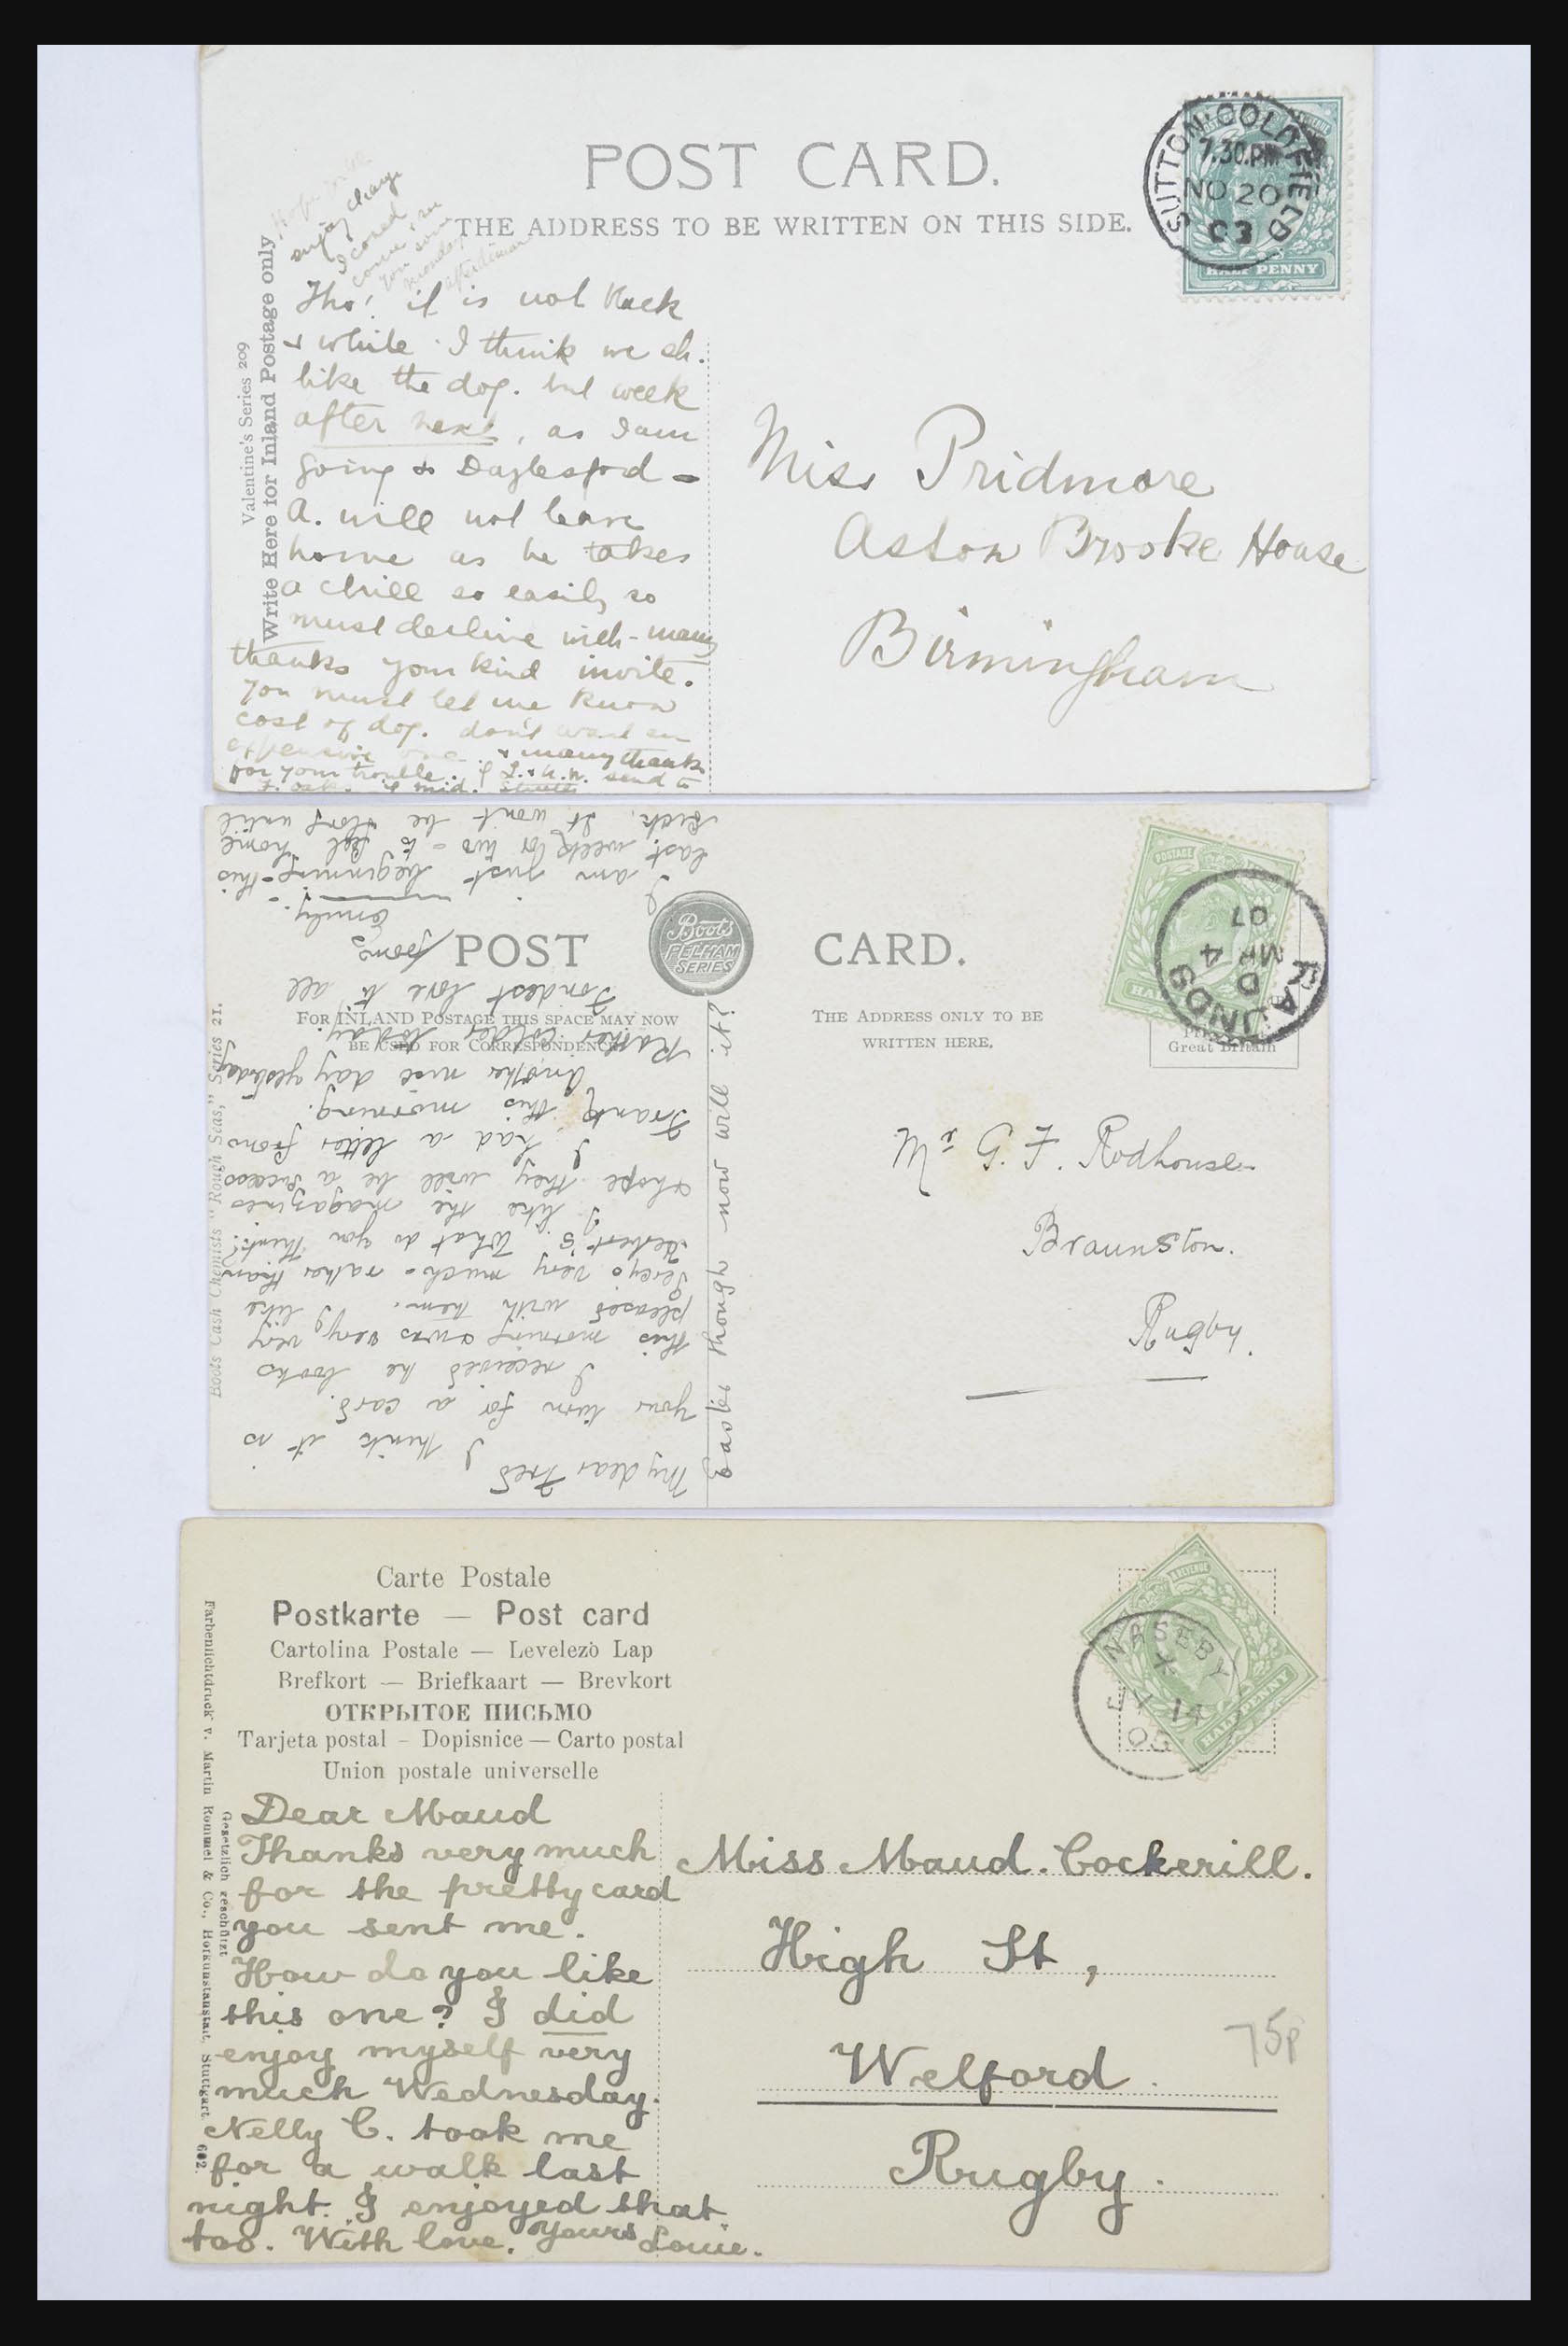 POST CARD.
THE ADDRESS TO BE WRITTEN ON THIS SIDE.
Valentine's Series 209
Write Here for Inland Postage only
SUTTON COLDFIELD
7.30.PM
NO 20
03
HALF PENNY
Hope
enjoy change
I
come
you
Monday
Tho' it is not black
& white I think we sh.
like the dog. but week
after next, as I am
going to Daylesford -
A. will not leave
home as he takes
a chill so easily so
must decline with many
thanks your kind invite.
You must let me know
cost of dog. don't want an
expensive one & many thanks
for your trouble. send to
Miss Pridmore
Aston Brooke House
Birmingham
POST CARD.
Boots
PELHAM
SERIES
FOR INLAND POSTAGE THIS SPACE MAY NOW
BE USED FOR CORRESPONDENCE.
THE ADDRESS ONLY TO BE
WRITTEN HERE.
Great Britain
Boots Cash Chemists "Rough Seas," Series 21.
POSTAGE
RAUNDS
D
MR 4
07
My dear Fred
I think it is
your turn for a card.
I received the books
this morning & was very very
pleased with them. I like
Percy's very much - rather than
Herbert's. What do you think?
I like the magazines
& hope they will be a success
I had a letter from
Frank this morning.
Another nice day yesterday
Rather colder today.
Fondest love to all
from
Emily.
I am just beginning - this
last week or two - to feel home
sick. It won't be long until
Easter though now will it?
Mr G. F. Rodhouse
Braunston.
Rugby.
Carte Postale
Postkarte — Post card
Cartolina Postale — Levelezö Lap
Brefkort — Briefkaart — Brevkort
ОТКРЫТОЕ ПИСЬМО
Tarjeta postal – Dopisnice — Carto postal
Union postale universelle
Farbenlichtdruck v. Martin Rommel & Co., Hofkunstanstalt, Stuttgart. 602.
Gesetzlich geschützt
NASEBY
14
05
HALF PENNY
Dear Maud
Thanks very much
for the pretty card
you sent me.
How do you like
this one? I did
enjoy myself very
much Wednesday.
Nelly C. took me
for a walk last
night. I enjoyed that
too. With love. Yours Louie.
Miss Maud. Cockerill.
High St,
Welford.
Rugby.
75p